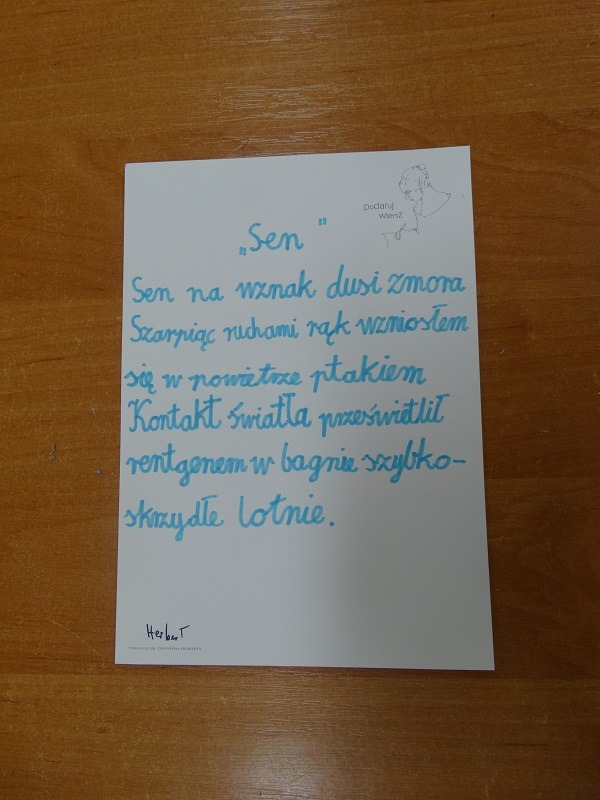 podaruj
wiersz
„Sen"
Sen na wznak dusi zmora
Szarpiąc ruchami rąk wzniosłem
się w powietrze ptakiem
Kontakt światła prześwietlił
rentgenem w bagnie szybko-
skrzydłe lotnie.
Herbert
FUNDACJA IM. ZBIGNIEWA HERBERTA